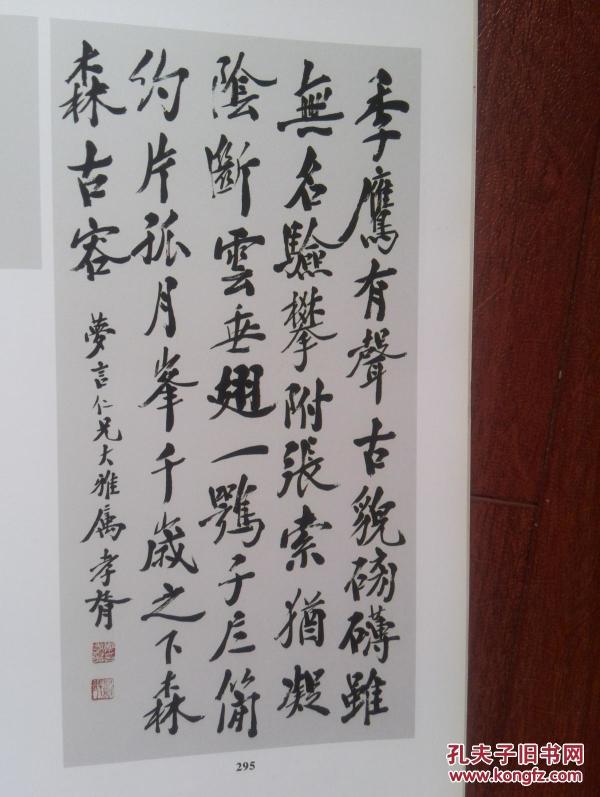 季鷹有聲古貌磅礴雖
無名驗攀附張索猶凝
陰斷雲垂翅一鶚簡
約片孤月峯千歲之下森
森古容
夢言仁兄大雅属 孝胥
295
孔夫子旧书网
www.kongfz.com